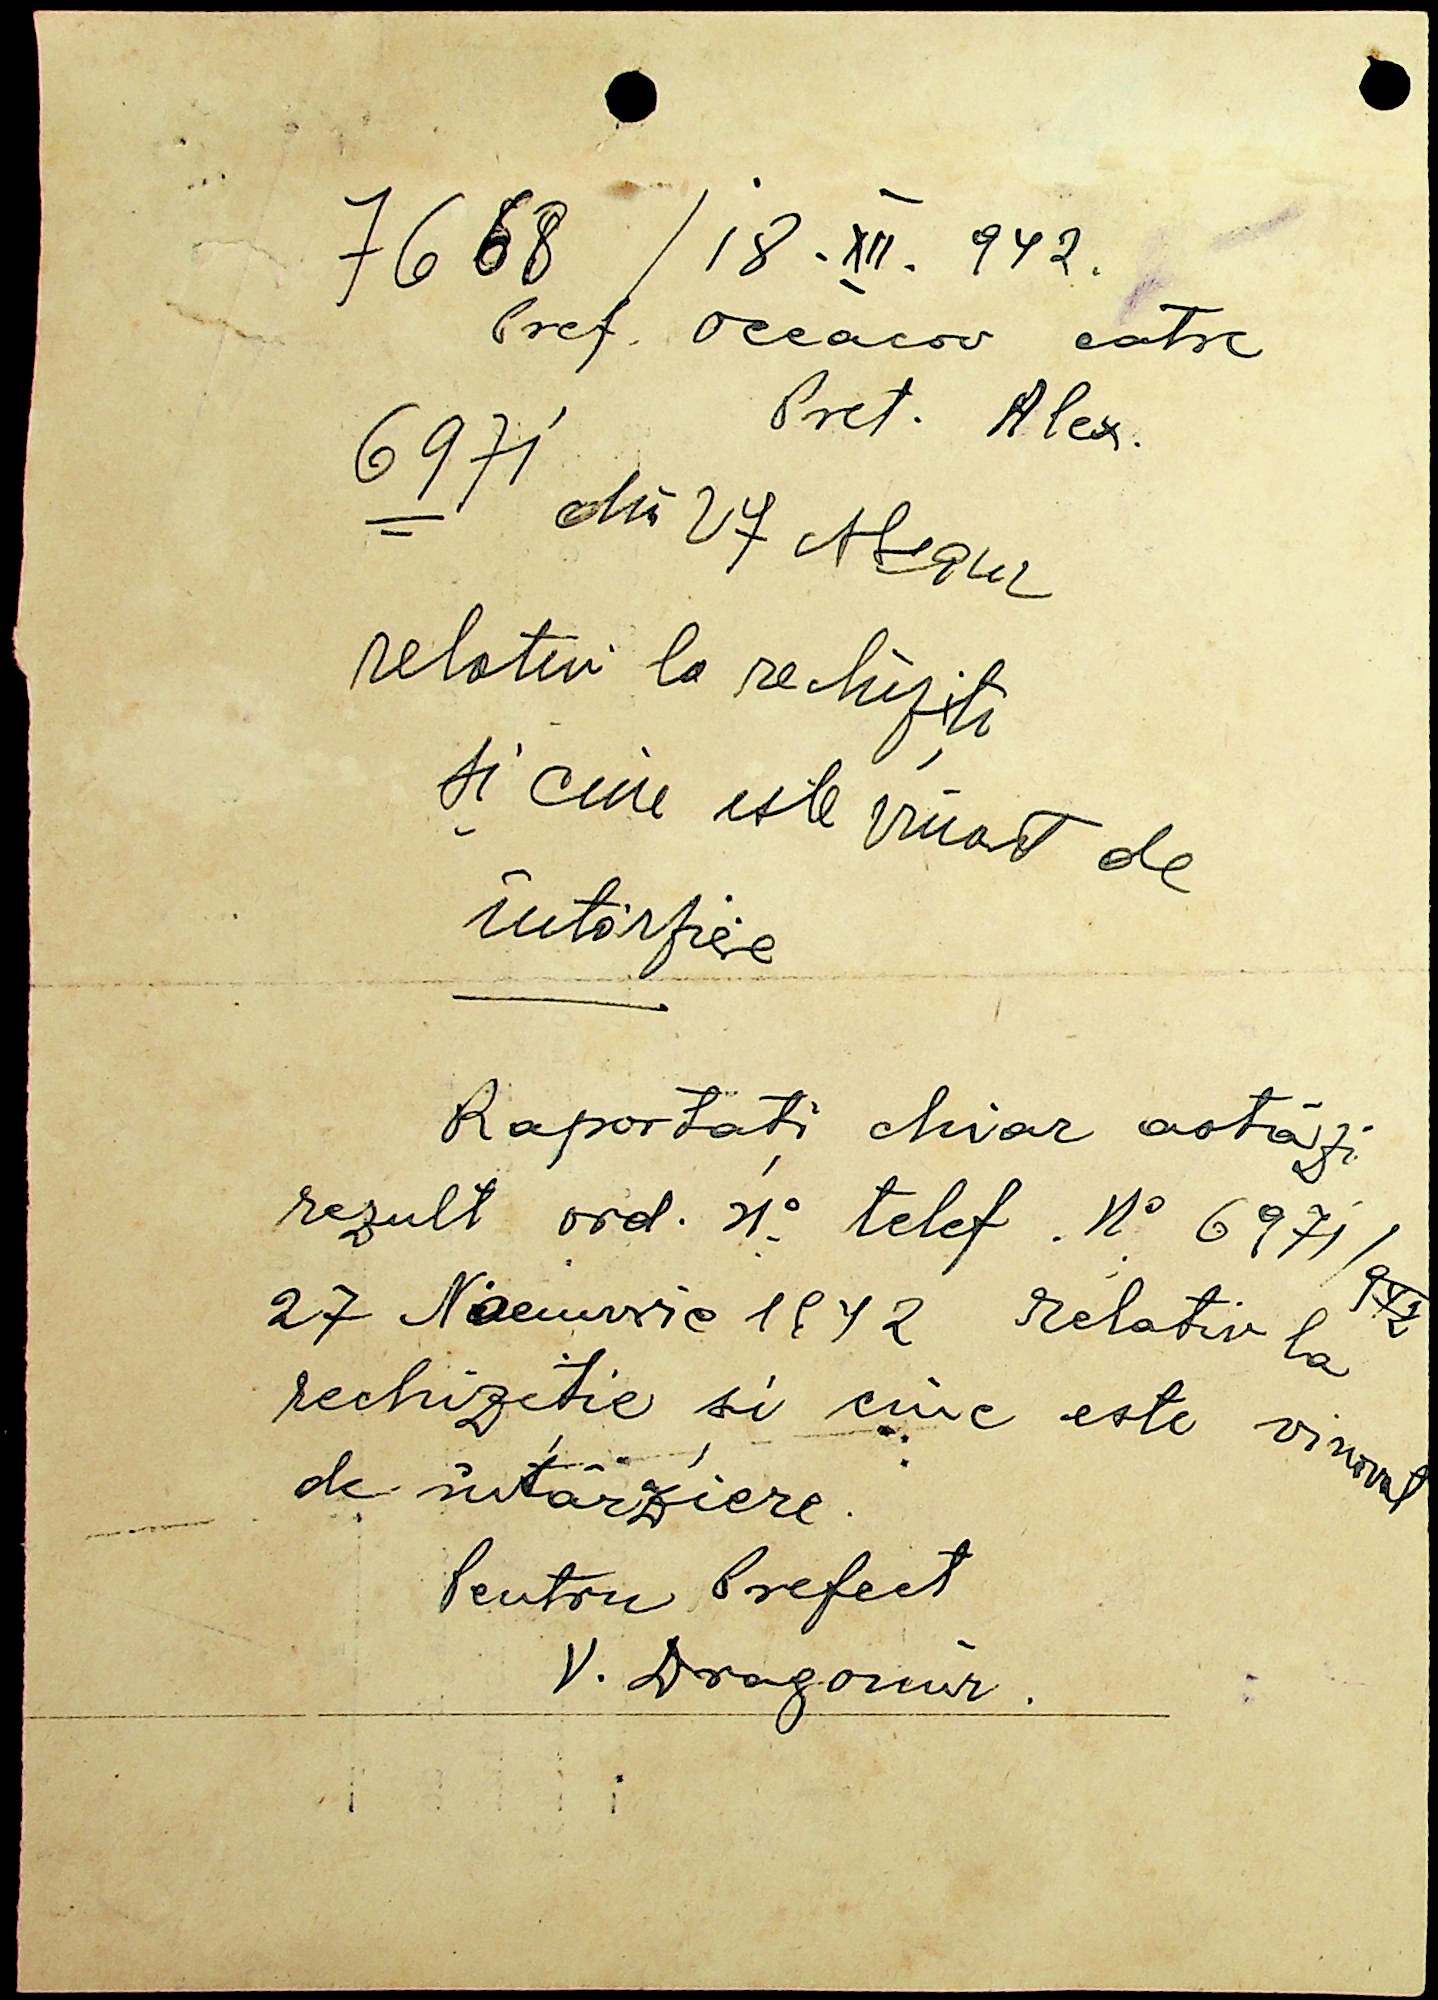 7668 / 18.XII.942.
Pref. Oceacov catre
Pret. Alex.
6971
din 27
relativ la rechiziți
și cine este vinovat de
întârziere
Raportați chiar astăzi
rezult ord. No. telef. No 6971/942
27 Noemvrie 1942 relativ la
rechiziție si cine este vinovat
de întârziere.
Pentru Prefect
V. Dragomir.